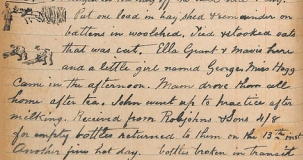 Put one load in hay shed & remainder on
battens in woolshed. Tied & stooked oats
that was cut. Ella Grant & Mavis here
and a little girl named George. Miss Hogg
came in the afternoon. Mam drove them all
home after tea. John went up to practice after
milking. Received from Robjohns & Sons 4/8
for empty bottles returned to them on the 13th inst
Another fine hot day. bottles broken in transit